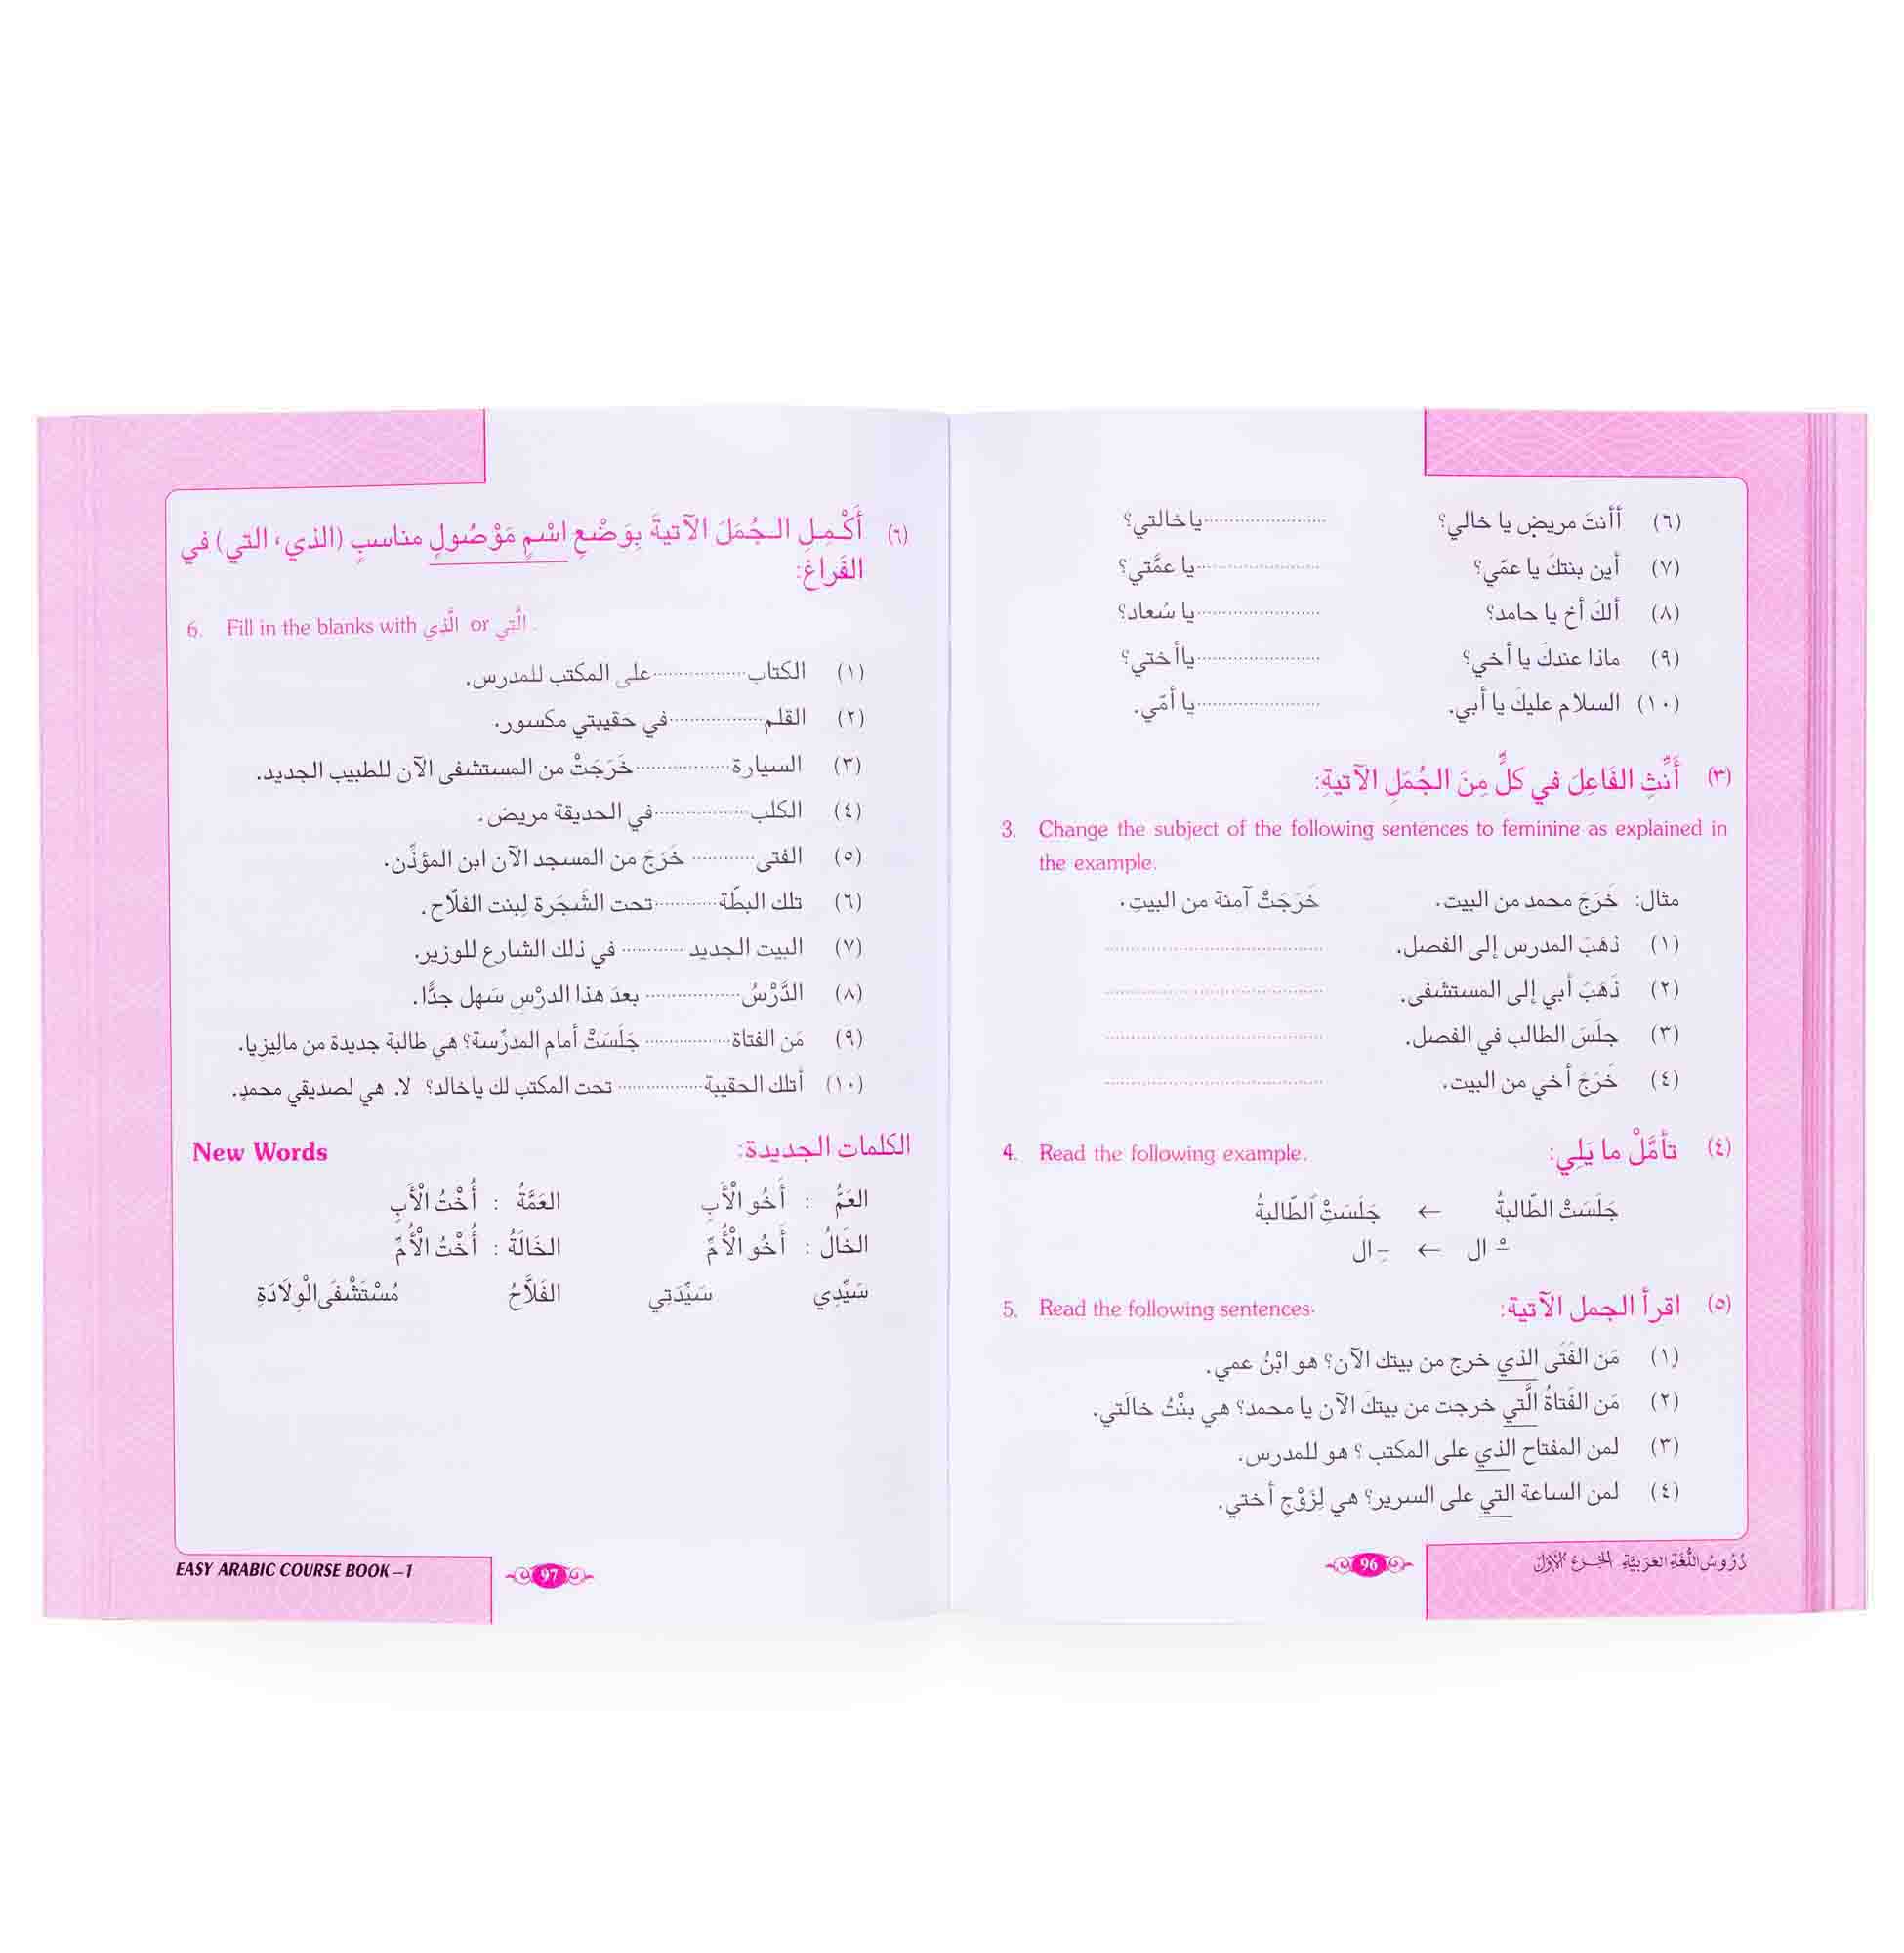 (٦) أأنتَ مريض يا خالي؟ ........................ ياخالتي؟
(٧) أين بنتكَ يا عمّي؟ ........................ يا عمَّتي؟
(٨) ألكَ أخ يا حامد؟ ........................ يا سُعاد؟
(٩) ماذا عندكَ يا أخي؟ ........................ ياأختي؟
(١٠) السلام عليكَ يا أبي. ........................ يا أمّي.
(٣) أَنِّثِ الفَاعِلَ في كلٍّ مِنَ الجُمَلِ الآتيةِ:
3. Change the subject of the following sentences to feminine as explained in
the example.
مثال: خَرَجَ محمد من البيت. خَرَجَتْ آمنة من البيتِ.
(١) ذهَبَ المدرس إلى الفصل. ........................
(٢) ذَهَبَ أبي إلى المستشفى. ........................
(٣) جلَسَ الطالب في الفصل. ........................
(٤) خَرَجَ أخي من البيت. ........................
(٤) تأمَّلْ ما يَلِي: 4. Read the following example.
جَلَسَتْ الطّالبةُ ← جَلَسَتِْ ٱلطّالبةُ
ـْ ال ← ـِ ال
(٥) اقرأ الجمل الآتية: 5. Read the following sentences.
(١) مَن الفَتَى الذي خرج من بيتك الآن؟ هو ابْنُ عمي.
(٢) مَن الفَتاةُ الَّتي خرجت من بيتكَ الآن يا محمد؟ هي بنْتُ خالَتي.
(٣) لمن المفتاح الذي على المكتب ؟ هو للمدرس.
(٤) لمن الساعة التي على السرير؟ هي لِزَوْجِ أختي.
دُرُوسُ اللُّغَةِ العَرَبِيَّةِ الجزء الأوّل
96
(٦) أَكْمِلِ الجُمَلَ الآتيةَ بِوَضْعِ اسْمٍ مَوْصُولٍ مناسبٍ (الذي، التي) في
الفَراغ:
6. Fill in the blanks with الَّذي or الَّتي .
(١) الكتاب .................. على المكتب للمدرس.
(٢) القلم .................. في حقيبتي مكسور.
(٣) السيارة .................. خَرَجَتْ من المستشفى الآن للطبيب الجديد.
(٤) الكلب .................. في الحديقة مريض.
(٥) الفتى ............ خَرَجَ من المسجد الآن ابن المؤذّن.
(٦) تلك البطّة ............ تحت الشَجَرة لِبنت الفلّاح.
(٧) البيت الجديد ............ في ذلك الشارع للوزير.
(٨) الدَّرْسُ .................. بعدَ هذا الدرْسِ سَهل جدًّا.
(٩) مَن الفتاة .................. جَلَسَتْ أمام المدرِّسة؟ هي طالبة جديدة من ماليزيا.
(١٠) أتلك الحقيبة .................. تحت المكتب لك ياخالد؟ لا. هي لصديقي محمدٍ.
الكلمات الجديدة: New Words
العَمُّ : أَخُو الْأَبِ العَمَّةُ : أُخْتُ الْأَبِ
الخَالُ : أَخُو الْأُمِّ الخَالَةُ : أُخْتُ الْأُمِّ
سَيِّدِي سَيِّدَتِي الفَلَّاحُ مُسْتَشْفَى الْوِلَادَةِ
EASY ARABIC COURSE BOOK –1
97